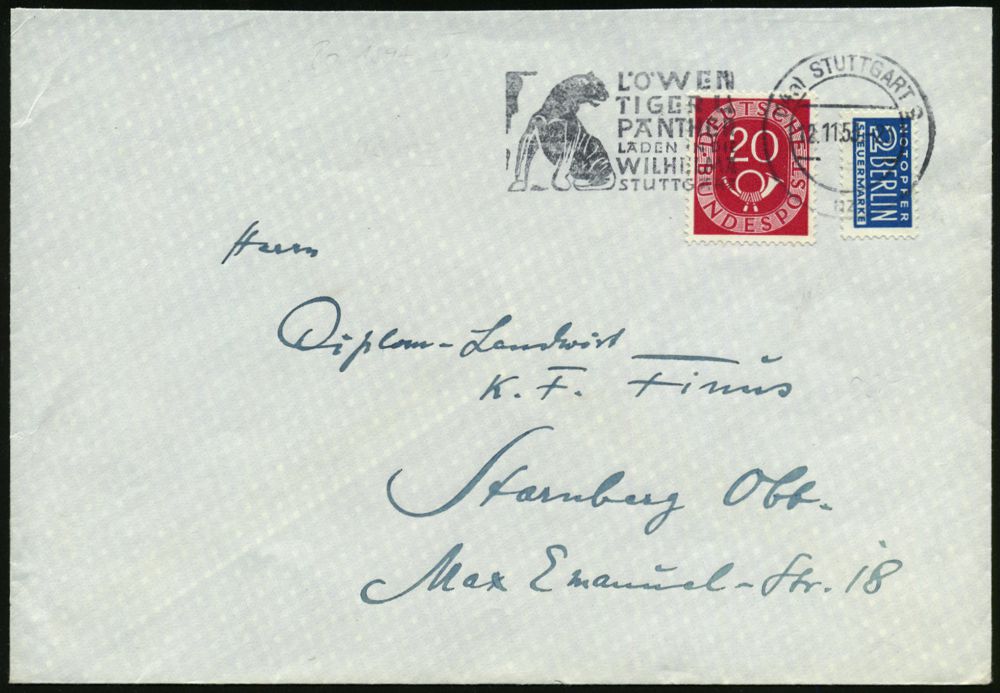 LÖWEN
TIGER U.
PANTHER
LADEN IN DIE
WILHELMA
STUTTGART
STUTTGART 9
12.11.5
DEUTSCHE
BUNDESPOST
20
NOTOPFER
2 BERLIN
STEUERMARKE
Herrn
Diplom-Landwirt
K. F. Finus
Starnberg Obb.
Max Emanuel-Str. 18